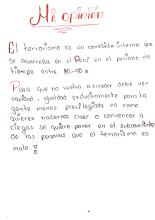 Mi opinión
El terrorismo es un conflicto interno que
se desarrolla en el Perú en el periodo de
tiempo entre 80-90.
Para que no vuelva a suceder debe ver
equidad, igualdad exclusivamente para la
gente menos previlegiada no como
quieren hacernos creer o convencer a
ciegas se quiere poner en el subconsciente
de las personas que el terrorismo es
malo